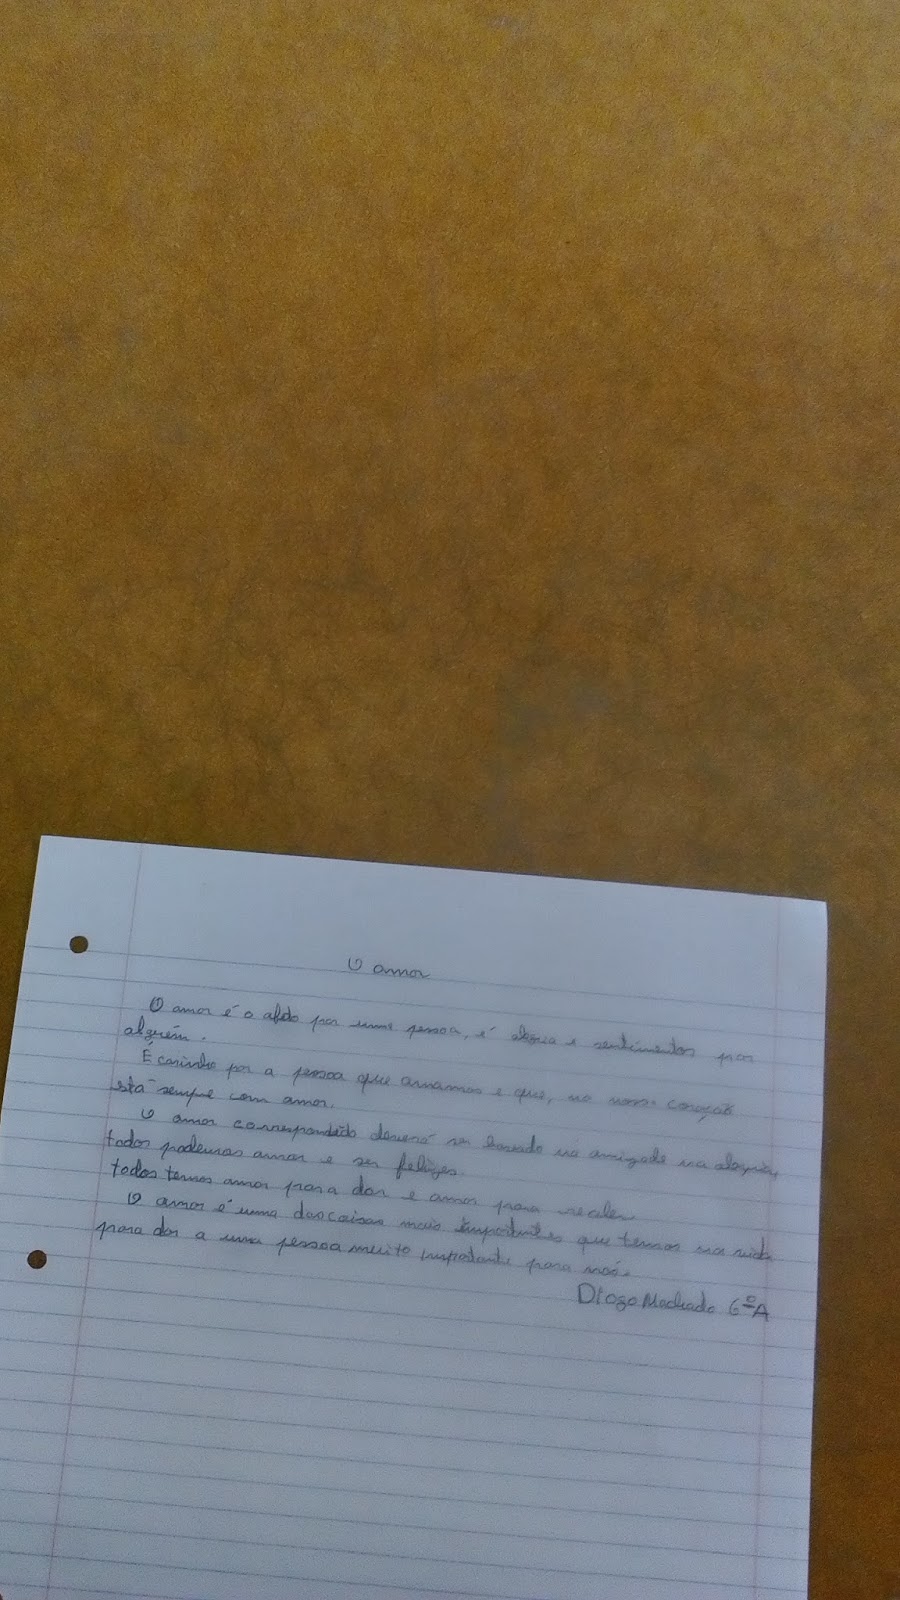 O amor
O amor é o afeto por uma pessoa, é alegria e sentimentos por
alguém.
É carinho por a pessoa que amamos e que, no nosso coração
está sempre com amor.
O amor correspondido deverá ser baseado na amizade na alegria,
todos podemos amar e ser felizes.
todos temos amor para dar e amor para receber
O amor é uma das coisas mais importantes que temos na vida
para dar a uma pessoa muito importante para nós.
Diogo Machado 6ºA